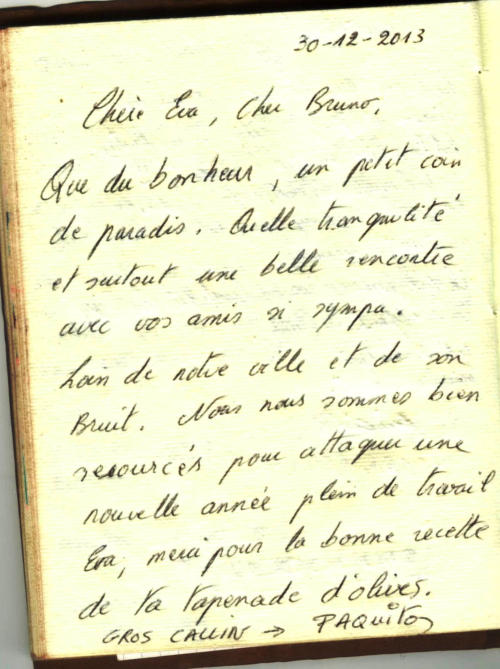 30-12-2013
Chère Eva, Cher Bruno,
Que du bonheur, un petit coin
de paradis. Quelle tranquilité
et surtout une belle rencontre
avec vos amis si sympa.
Loin de notre ville et de son
Bruit. Nous nous sommes bien
resourcés pour attaquer une
nouvelle année plein de travail
Eva, merci pour la bonne recette
de ta tapenade d'olives.
GROS CALLIN → PAQUITO